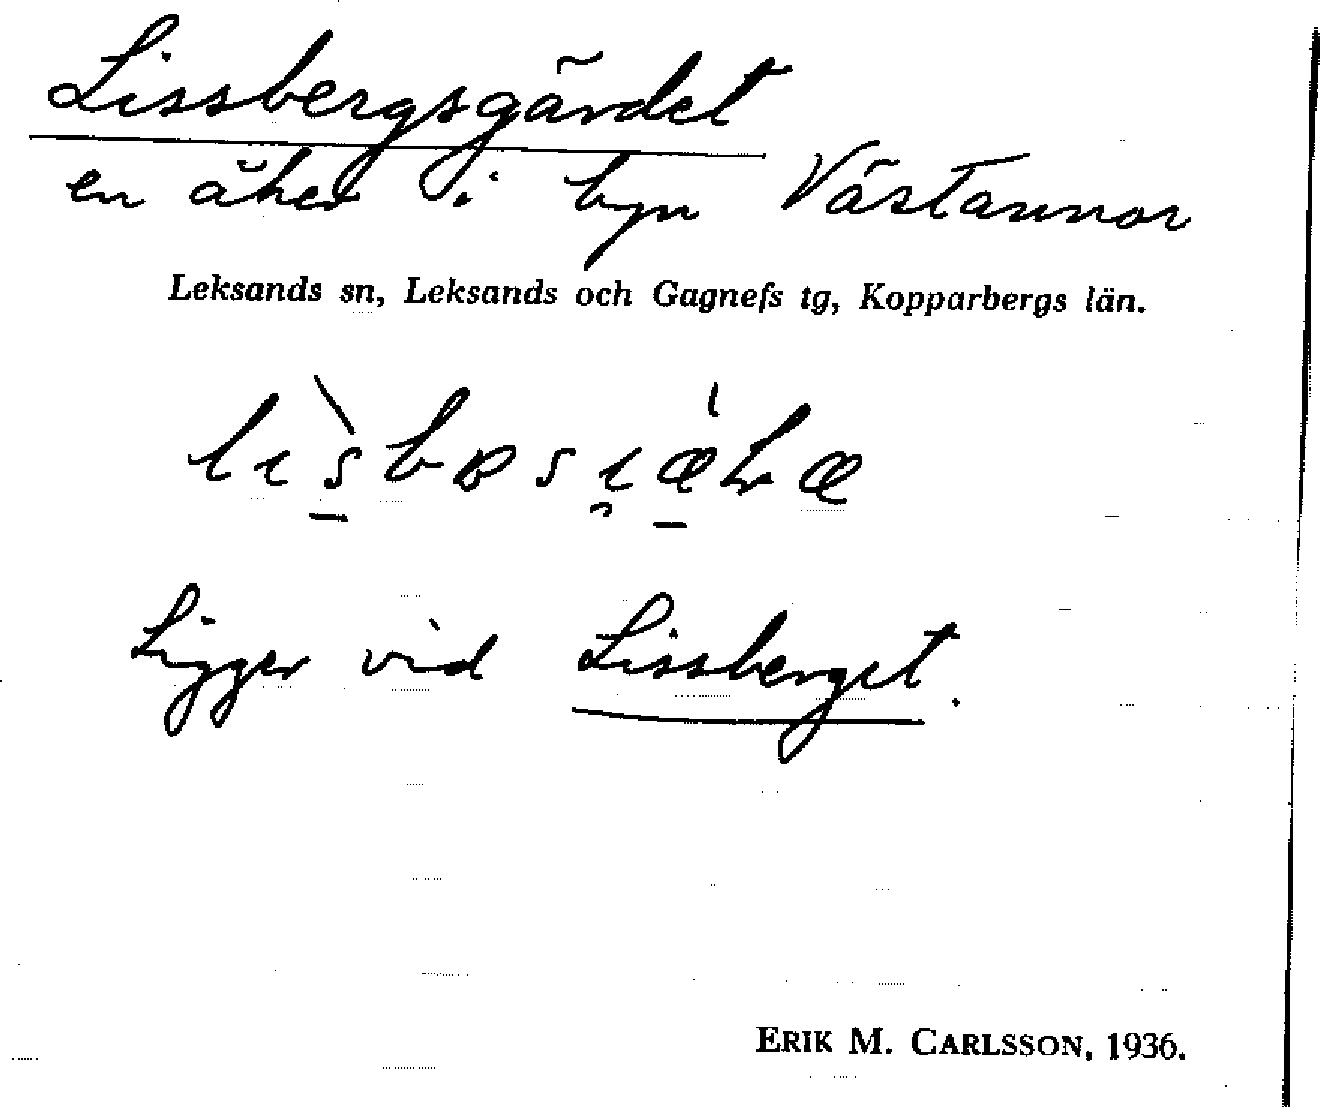 Lissbergsgärdet
en åker i byn Västannor
Leksands sn, Leksands och Gagnefs tg, Kopparbergs län.
Ligger vid Lissberget.
ERIK M. CARLSSON, 1936.